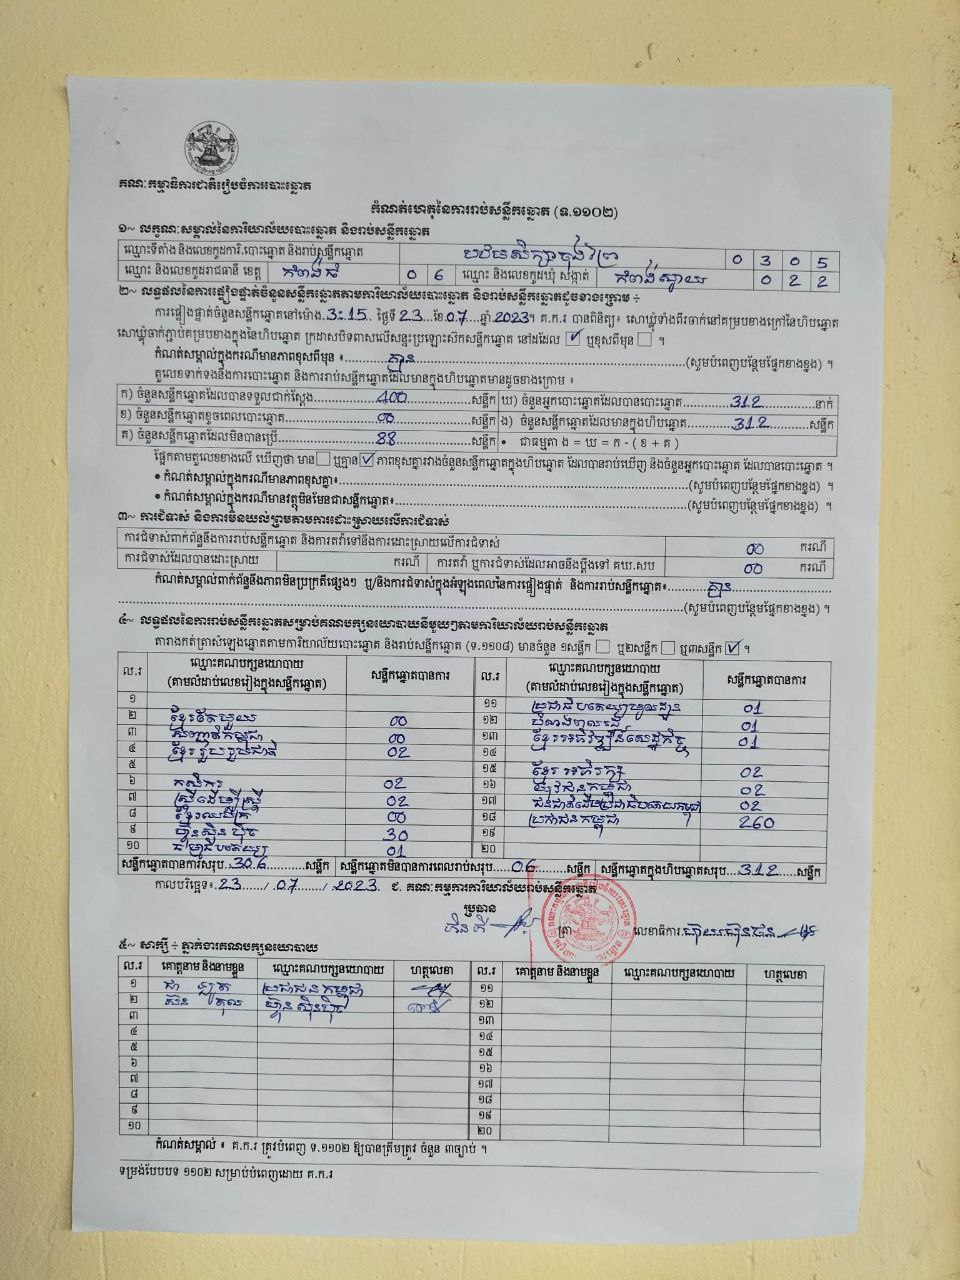 គណៈកម្មាធិការជាតិរៀបចំការបោះឆ្នោត
កំណត់ហេតុនៃការរាប់សន្លឹកឆ្នោត (ទ.១១០២)
១~ លក្ខណៈសម្គាល់នៃការិយាល័យបោះឆ្នោត និងរាប់សន្លឹកឆ្នោត
ឈ្មោះទីតាំង និងលេខកូដការិ.បោះឆ្នោត និងរាប់សន្លឹកឆ្នោត បឋមសិក្សាចុងព្រៃ 0 3 0 5
ឈ្មោះ និងលេខកូដរាជធានី ខេត្ត កំពង់ធំ 0 6 ឈ្មោះ និងលេខកូដឃុំ សង្កាត់ កំពង់ស្វាយ 0 2 2
២~ លទ្ធផលនៃការផ្ទៀងផ្ទាត់ចំនួនសន្លឹកឆ្នោតតាមការិយាល័យបោះឆ្នោត និងរាប់សន្លឹកឆ្នោតដូចខាងក្រោម ÷
ការផ្ទៀងផ្ទាត់ចំនួនសន្លឹកឆ្នោតនៅម៉ោង 3:15 ថ្ងៃទី 23 ខែ 07 ឆ្នាំ 2023។ គ.ក.រ បានពិនិត្យ៖ សោឃ្លុំទាំងពីរចាក់នៅគម្របខាងក្រៅនៃហិបឆ្នោត
សោឃ្លុំចាក់ភ្ជាប់គម្របខាងក្នុងនៃហិបឆ្នោត ក្រដាសបិទពាសលើសន្ទះប្រឡោះស៊កសន្លឹកឆ្នោត នៅដដែល ☑ ឬខុសពីមុន ☐ ។
កំណត់សម្គាល់ក្នុងករណីមានភាពខុសពីមុន ៖ គ្មាន (សូមបំពេញបន្ថែមផ្នែកខាងខ្នង) ។
តួលេខទាក់ទងនឹងការបោះឆ្នោត និងការរាប់សន្លឹកឆ្នោតដែលមានក្នុងហិបឆ្នោតមានដូចខាងក្រោម ៖
ក) ចំនួនសន្លឹកឆ្នោតដែលបានទទួលជាក់ស្តែង 400 សន្លឹក ឃ) ចំនួនអ្នកបោះឆ្នោតដែលបានបោះឆ្នោត 312 នាក់
ខ) ចំនួនសន្លឹកឆ្នោតខូចពេលបោះឆ្នោត 00 សន្លឹក ង) ចំនួនសន្លឹកឆ្នោតដែលមានក្នុងហិបឆ្នោត 312 សន្លឹក
គ) ចំនួនសន្លឹកឆ្នោតដែលមិនបានប្រើ 88 សន្លឹក • ជាធម្មតា ង = ឃ = ក - ( ខ + គ )
ផ្អែកតាមតួលេខខាងលើ ឃើញថា មាន ☐ ឬគ្មាន ☑ ភាពខុសគ្នារវាងចំនួនសន្លឹកឆ្នោតក្នុងហិបឆ្នោត ដែលបានរាប់ឃើញ និងចំនួនអ្នកបោះឆ្នោត ដែលបានបោះឆ្នោត ។
• កំណត់សម្គាល់ក្នុងករណីមានភាពខុសគ្នា៖ (សូមបំពេញបន្ថែមផ្នែកខាងខ្នង) ។
• កំណត់សម្គាល់ក្នុងករណីមានវត្ថុមិនមែនជាសន្លឹកឆ្នោត៖ (សូមបំពេញបន្ថែមផ្នែកខាងខ្នង) ។
៣~ ការជំទាស់ និងការមិនយល់ព្រមតាមការដោះស្រាយលើការជំទាស់
ការជំទាស់ពាក់ព័ន្ធនឹងការរាប់សន្លឹកឆ្នោត និងការតវ៉ាទៅនឹងការដោះស្រាយលើការជំទាស់ 00 ករណី
ការជំទាស់ដែលបានដោះស្រាយ ករណី ការតវ៉ា ឬការជំទាស់ដែលអាចនឹងប្តឹងទៅ គឃ.សប 00 ករណី
កំណត់សម្គាល់ពាក់ព័ន្ធនឹងភាពមិនប្រក្រតីផ្សេងៗ ឬ/និងការជំទាស់ក្នុងអំឡុងពេលនៃការផ្ទៀងផ្ទាត់ និងការរាប់សន្លឹកឆ្នោត៖ គ្មាន
(សូមបំពេញបន្ថែមផ្នែកខាងខ្នង) ។
៤~ លទ្ធផលនៃការរាប់សន្លឹកឆ្នោតសម្រាប់គណបក្សនយោបាយនីមួយៗតាមការិយាល័យរាប់សន្លឹកឆ្នោត
តារាងកត់ត្រាសំឡេងឆ្នោតតាមការិយាល័យបោះឆ្នោត និងរាប់សន្លឹកឆ្នោត (ទ.១១០៨) មានចំនួន ១សន្លឹក ☐ ឬ២សន្លឹក ☐ ឬ៣សន្លឹក ☑ ។
ល.រ ឈ្មោះគណបក្សនយោបាយ (តាមលំដាប់លេខរៀងក្នុងសន្លឹកឆ្នោត) សន្លឹកឆ្នោតបានការ ល.រ ឈ្មោះគណបក្សនយោបាយ (តាមលំដាប់លេខរៀងក្នុងសន្លឹកឆ្នោត) សន្លឹកឆ្នោតបានការ
១ ១១ ប្រជាធិបតេយ្យមូលដ្ឋាន 01
២ ខ្មែរតែមួយ 00 ១២ 01
៣ សញ្ជាតិកម្ពុជា 00 ១៣ ខ្មែរអភិវឌ្ឍន៍សេដ្ឋកិច្ច 01
៤ ខ្មែររួបរួមជាតិ 02 ១៤
៥ ១៥ ខ្មែរអភិរក្ស 02
៦ កសិករ 02 ១៦ យុវជនកម្ពុជា 02
៧ ស្ត្រីដើម្បីស្ត្រី 02 ១៧ ជនជាតិដើមប្រជាធិបតេយ្យកម្ពុជា 02
៨ ខ្មែរឈប់ក្រ 00 ១៨ ប្រជាជនកម្ពុជា 260
៩ ហ៊្វុនស៊ិនប៉ិច 30 ១៩
១០ ធម្មាធិបតេយ្យ 01 ២០
សន្លឹកឆ្នោតបានការសរុប 306 សន្លឹក សន្លឹកឆ្នោតមិនបានការពេលរាប់សរុប 06 សន្លឹក សន្លឹកឆ្នោតក្នុងហិបឆ្នោតសរុប 312 សន្លឹក
កាលបរិច្ឆេទ៖ 23 / 07 / 2023 ជ. គណៈកម្មការការិយាល័យរាប់សន្លឹកឆ្នោត
ប្រធាន
ត្រា លេខាធិការ
៥~ សាក្សី ÷ ភ្នាក់ងារគណបក្សនយោបាយ
ល.រ គោត្តនាម និងនាមខ្លួន ឈ្មោះគណបក្សនយោបាយ ហត្ថលេខា ល.រ គោត្តនាម និងនាមខ្លួន ឈ្មោះគណបក្សនយោបាយ ហត្ថលេខា
១ ប្រជាជនកម្ពុជា ១១
២ ហ៊្វុនស៊ិនប៉ិច ១២
៣ ១៣
៤ ១៤
៥ ១៥
៦ ១៦
៧ ១៧
៨ ១៨
៩ ១៩
១០ ២០
កំណត់សម្គាល់ ៖ គ.ក.រ ត្រូវបំពេញ ទ.១១០២ ឱ្យបានត្រឹមត្រូវ ចំនួន ៣ច្បាប់ ។
ទម្រង់បែបបទ ១១០២ សម្រាប់បំពេញដោយ គ.ក.រ